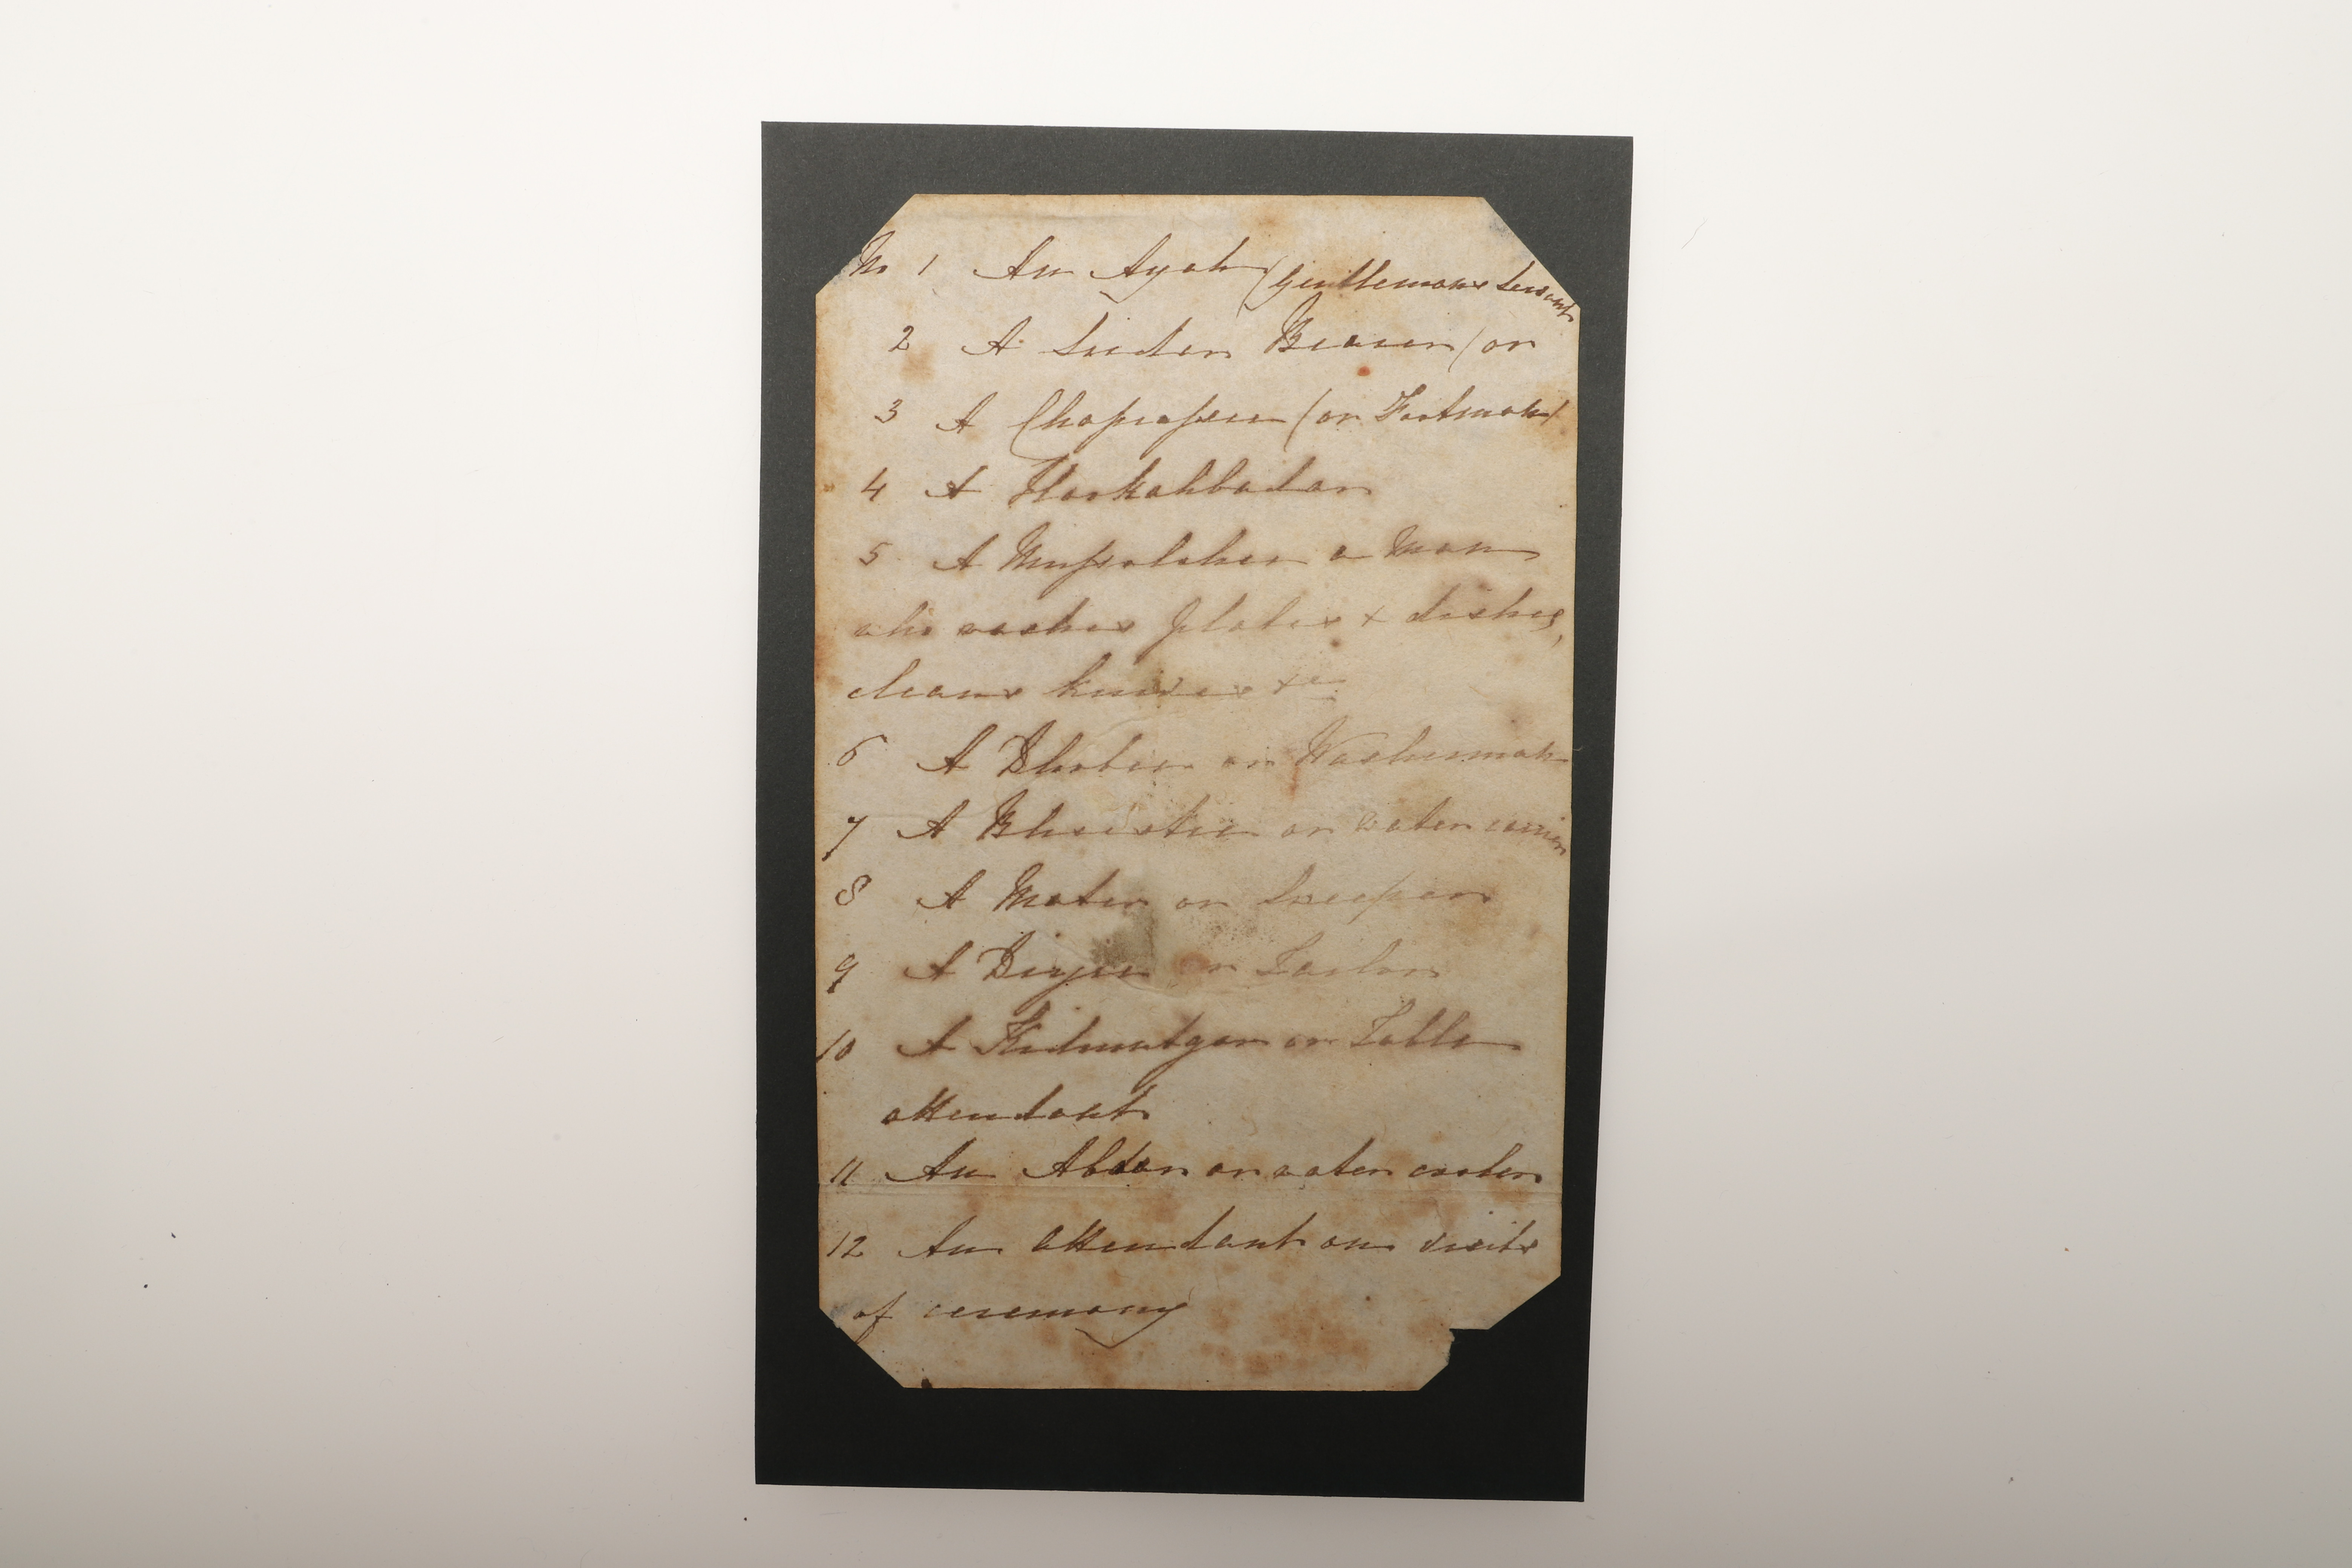 No 1 An Ayah (Gentlemans Servant
2 A Sirdar Bearer (or
3 A Chaprassee (or Footman)
4 A Hookahbadar
5 A Mussolchee a Man
who washes plates & dishes,
cleans knives &c
6 A Dhobee or Washerman
7 A Bheestee or water carrier
8 A Mater or Sweeper
9 A Dirjee or Tailor
10 A Kidmutgar or Table
attendant
11 An Abdar or water cooler
12 An attendant on visits
of ceremony